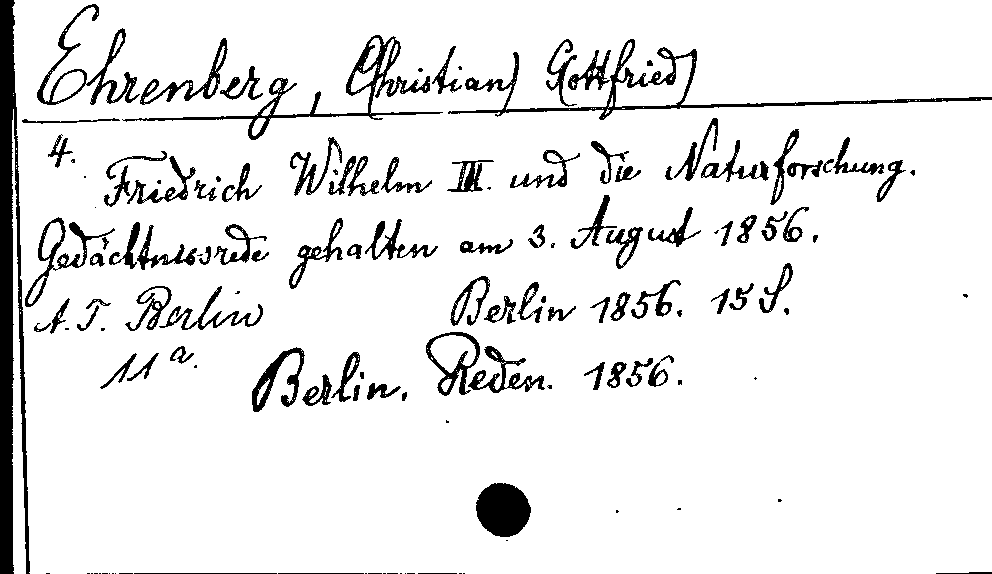 Ehrenberg, (Christian) G(ottfried)
4.
Friedrich Wilhelm III. und die Naturforschung.
Gedächtnissrede gehalten am 3. August 1856.
A. T. Berlin Berlin 1856. 15 S.
11a.
Berlin. Reden. 1856.